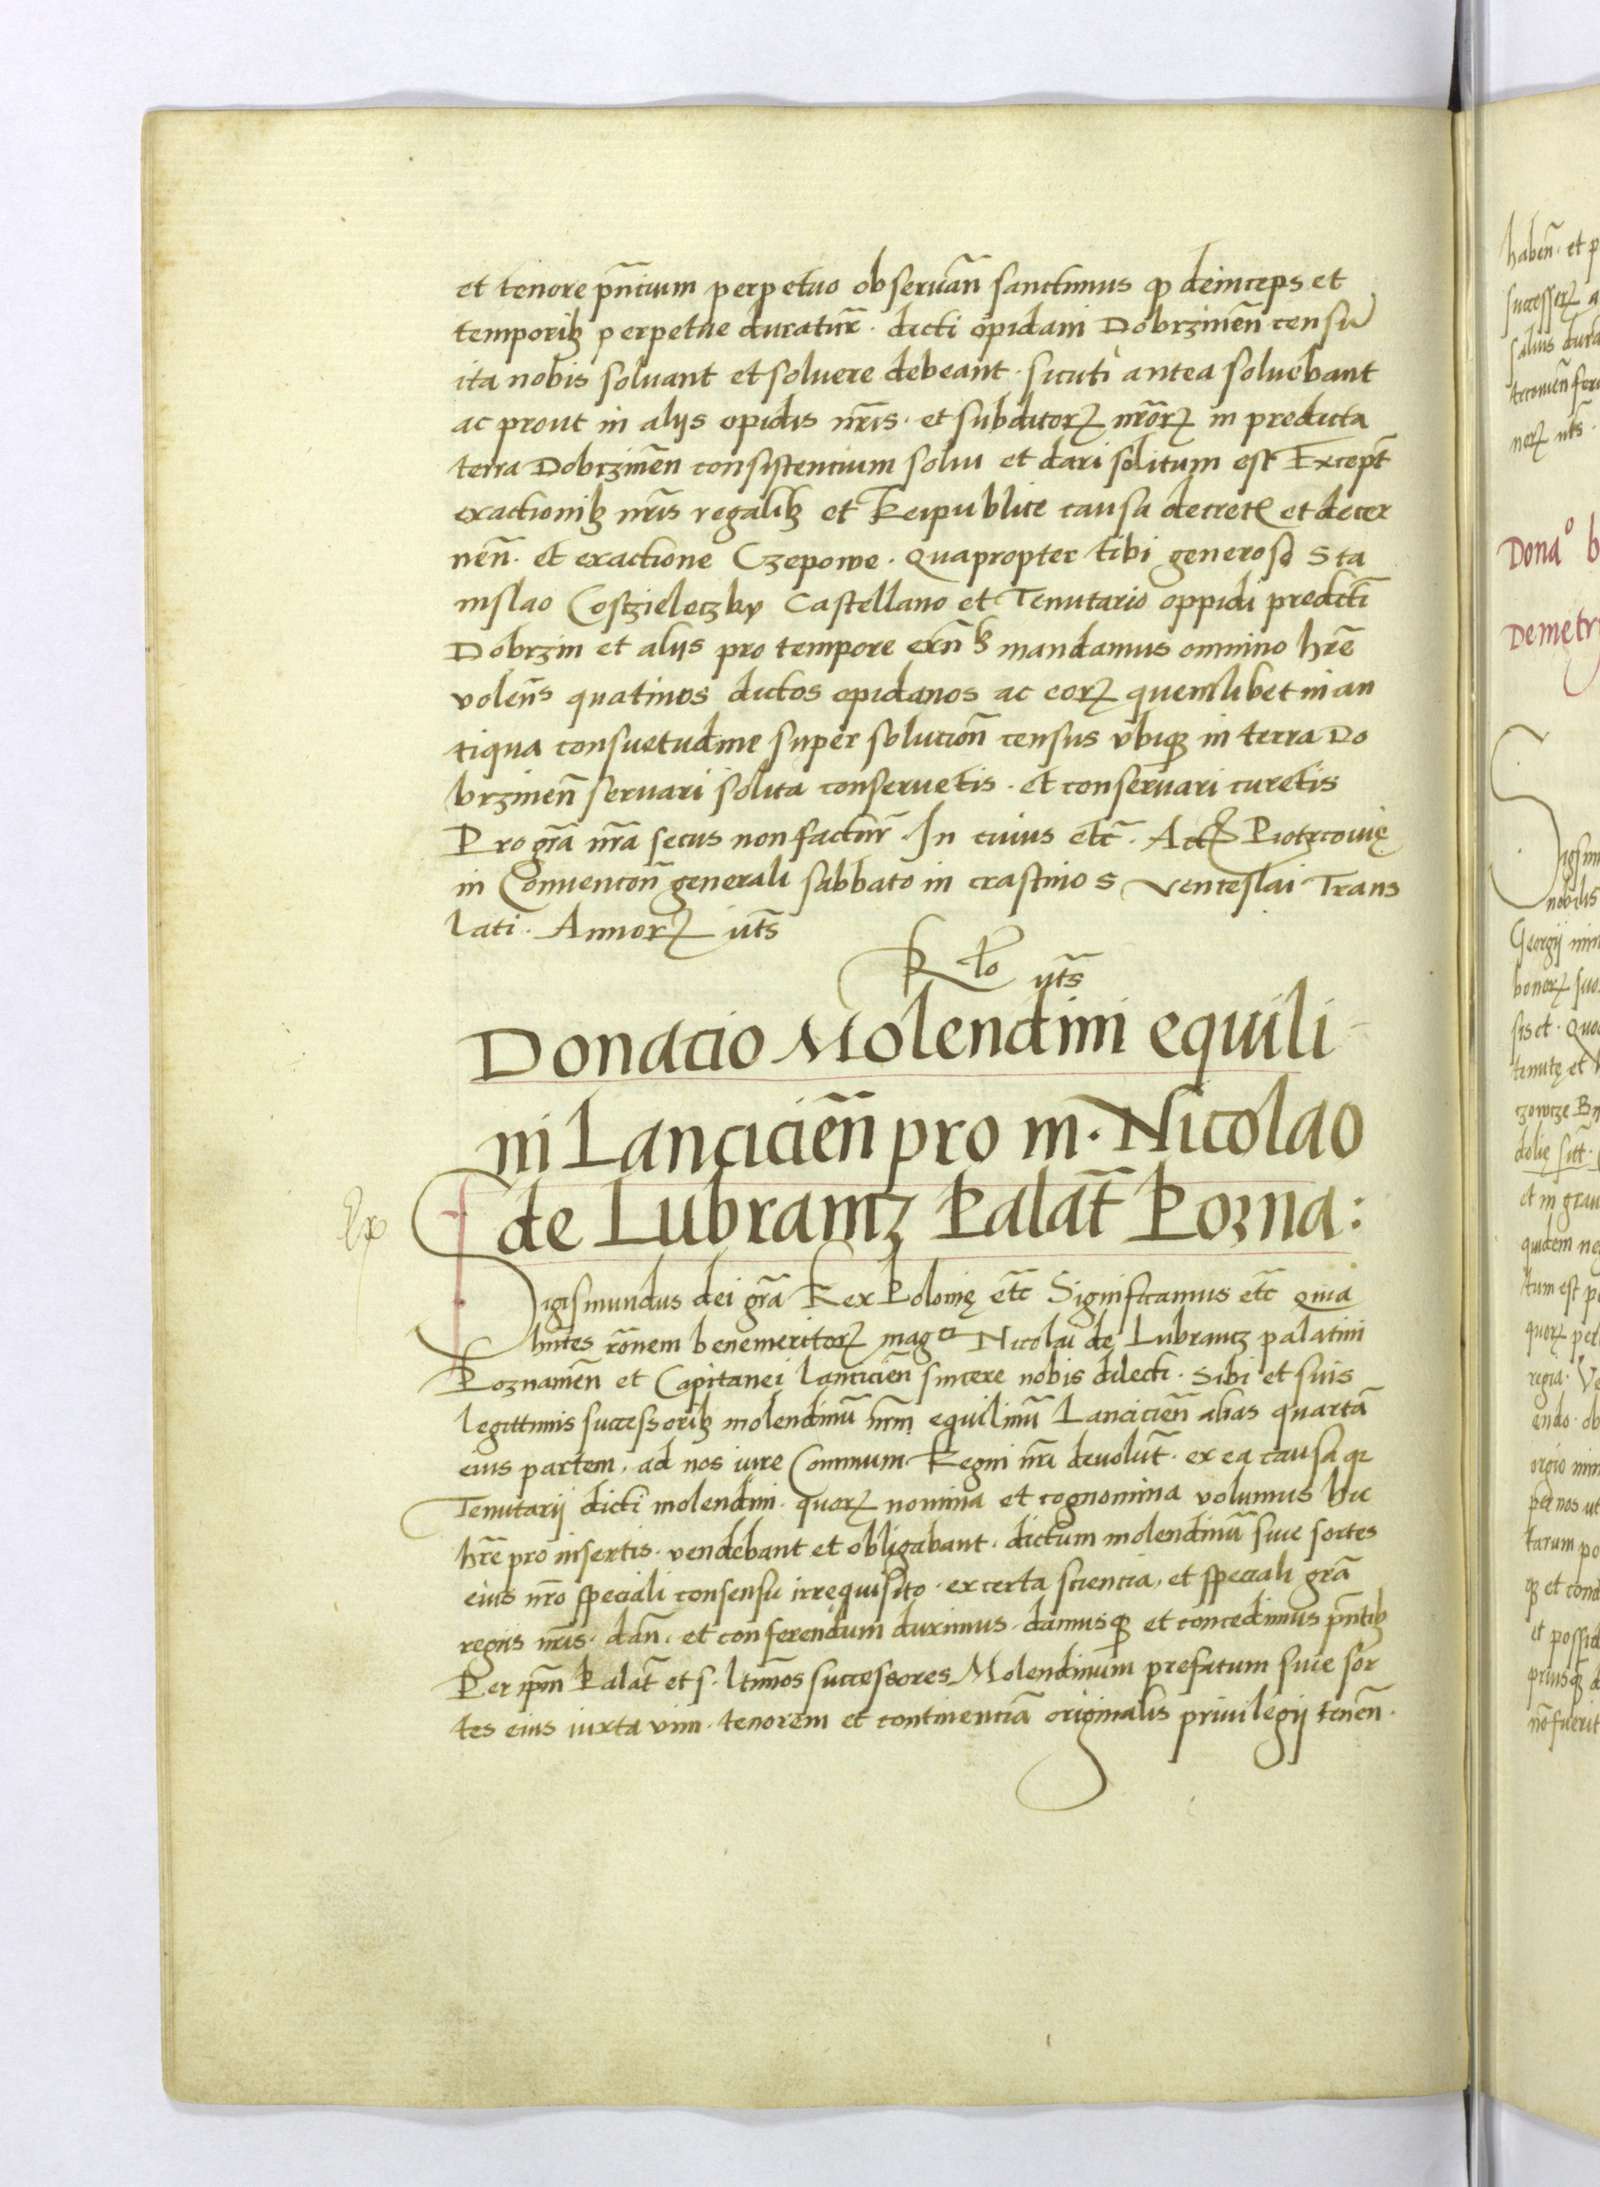 et tenore pñcium perpetuo obseruañ sanctimus ꝙ deinceps et
temporibꝫ perpetue duraturꝭ · dicti opidani Dobrzineñ censum
ita nobis soluant et soluere debeant · sicuti antea soluebant
ac prout in alijs opidis nrĩs · et subditorꝝ nrõrꝝ in predicta
terra Dobrzineñ consistencium solui et dari solitum est Except̃
exactionibꝫ nrĩs regalibꝫ et Reipublice causa decretꝭ et decer
neñ · et exactione Czepowe · Quapropter tibi generoso Sta
nislao Coszczieleczky Castellano et Tenutario oppidi predicti
Dobrzin et alijs pro tempore exñ mandamus omnino hrẽ
voleñs quatinus dictos opidanos ac eorꝝ quemlibet in an
tiqua consuetudine super solucioñ census vbiqꝫ in terra Do
brzineñ seruari solita conseruetis · et conseruari curetis
Pro grã nrã secus non facturꝭ · In cuius etc̃ · Actꝭ Piotrcouię
in Conuencioñ generali sabbato in crastino S Venceslai Trans
lati · Annorꝝ vts̃
Rlo vts̃
Donacio Molendini equili
ni Lancicieñ pro m · Nicolao
de Lubrancz Palat̃ Pozna :
Ex
Sigismundus dei grã Rex Polonię etc̃ Significamus etc̃ Quia
hñtes rõnem benemeritorꝝ mag⁽ᶜⁱ⁾ Nicolai de Lubrancz palatini
Poznanieñ et Capitanei Lancicieñ sincere nobis dilecti · Sibi et suis
legittimis successoribꝫ molendinũ nrm̃ equilinũ Lancicieñ alias quartã
eius partem · ad nos iure Commum · Regni nrĩ deuolut̃ · ex ea causa ꝙ
Tenutarij dicti molendini · quorꝝ nomina et cognomina volumus hic
hrẽ pro insertis · vendebant et obligabant · dictum molendinũ siue sortes
eius nrõ speciali consensu irrequisito · ex certa sciencia · et speciali grã
regijs nrĩs · dañ · et conferendum duximus · damusqꝫ et concedimus pñtibꝫ
Per ipm̃ Palat̃ et s · ltimos̃ successores Molendinum prefatum siue sor
tes eius iuxta vim · tenorem et continenciã originalis priuilegij teneñ ·
habeñ · et p
successorꝝ a
saluis
norꝝ vts̃ ·
Donaº b
Demetry
Sigism
nobilis
Georgij
bonorꝝ suo
sis et · Quo
tenutę et
dolię
et in grau
quidem ne
tum est p
quorꝝ
regia · Ve
endo · ob
orgio
per nos ut
tarum po
qꝫ et cond
et possid
nõ fuerit